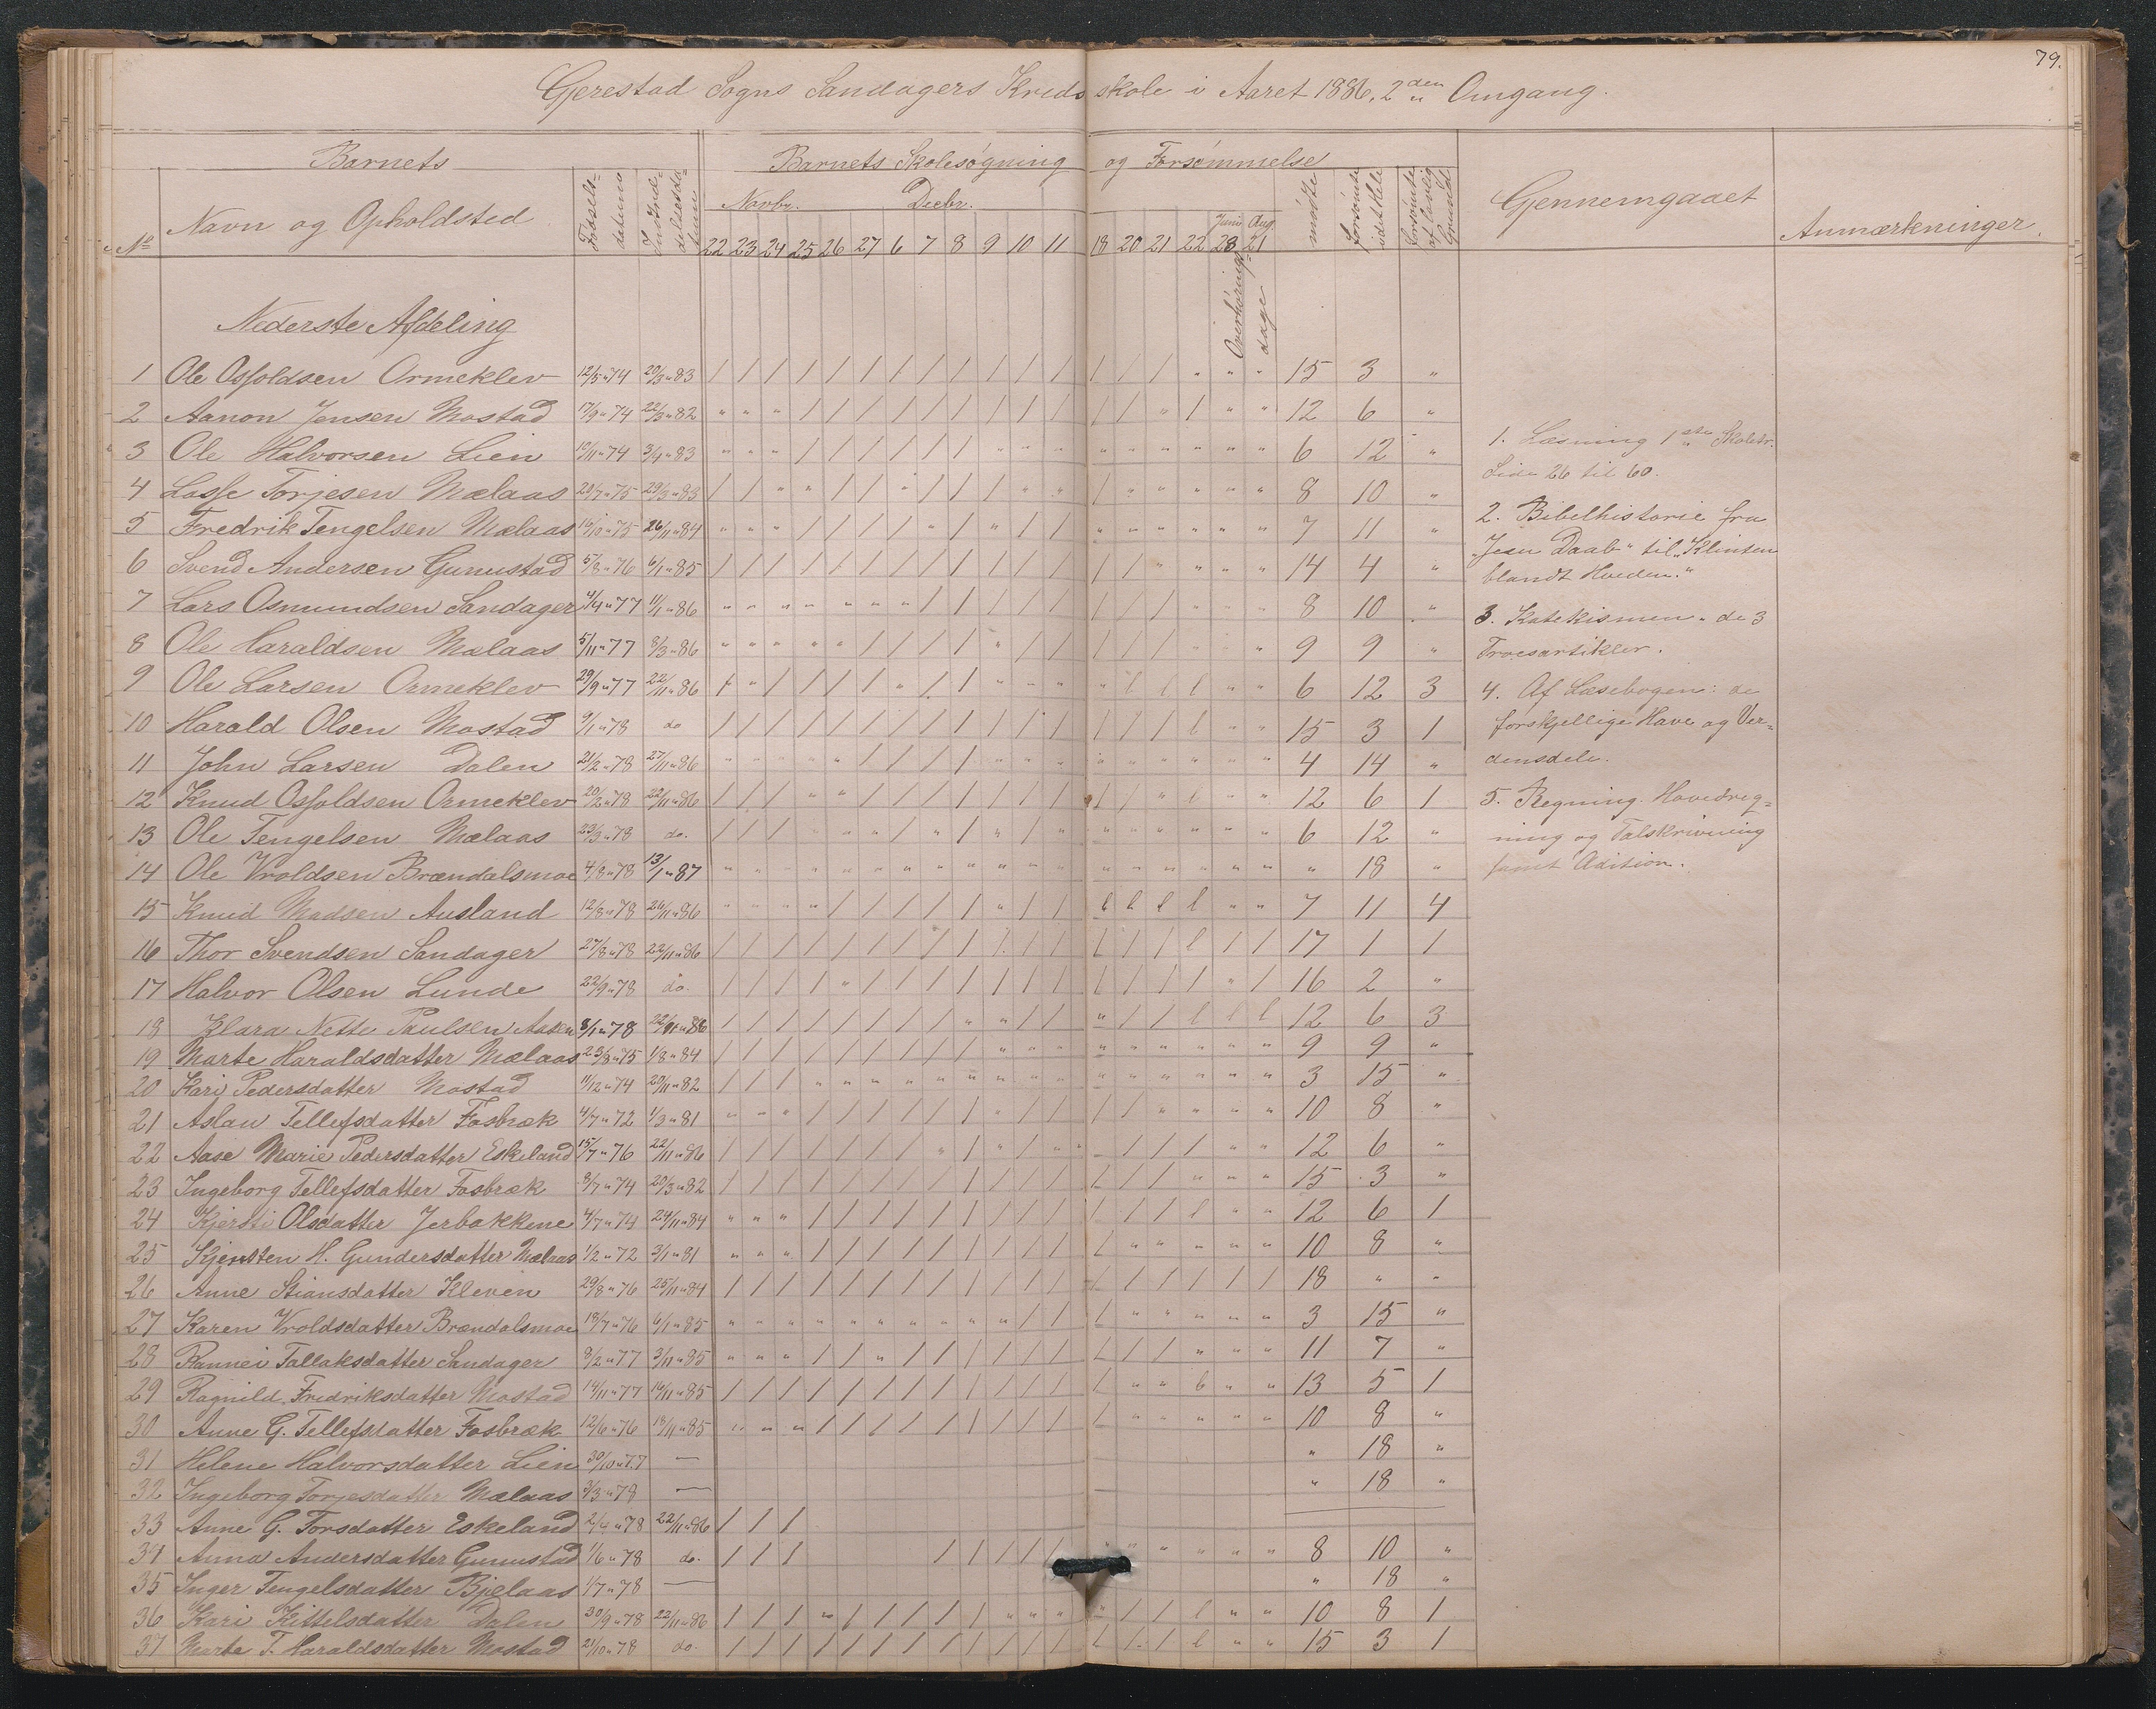 79.
Gjerestad Sogns Sandagers Kredsskole i Aaret 1886, 2den Omgang.
Barnets
Barnets Skolesøgning og Forsømmelse
No Navn og Opholdsted Fødsels-datum Indtrædelsesdatum
Novbr. Decbr. Juni Aug.
22 23 24 25 26 27 6 7 8 9 10 11 18 20 21 22 28 21
Overhørings dage
mødte forsømte idethele forsømte af lovlig Grund
Gjennemgaaet
Anmærkninger.
Nederste Afdeling
1 Ole Osfoldsen Ormeklev 12/5 " 74 20/3 " 83 / / / / / / / / / / / / / / / " " " 15 3 "
2 Aanon Jensen Mostad 17/9 " 74 22/3 " 82 " " " / / / / / / / / / / / " / " " 12 6 "
3 Ole Halvorsen Lien 10/11 " 74 3/4 " 83 " " " / / / / / / " " " " " " " " " 6 12 "
4 Losse Torjesen Mælaas 28/7 " 75 29/3 " 83 / / " " / / " / / / " " / " " " " " 8 10 "
5 Fredrik Tengelsen Mælaas 16/10 " 75 26/11 " 84 " " " / / / / " / " / / " " " " " " 7 11 "
6 Svend Andersen Gunnstad 5/8 " 76 6/1 " 85 / / / / / / / / / / / / / / " " " " 14 4 "
7 Lars Osmundsen Sandager 4/4 " 77 11/1 " 86 " " " " " " " / / / / / / / / " " " 8 10 "
8 Ole Haraldsen Mælaas 5/11 " 77 8/3 " 86 " " " " " / / / / " / / / / / " " " 9 9 "
9 Ole Larsen Ormeklev 29/9 " 77 22/11 " 86 / " / / / / " / / " " " " l l l " " 6 12 3
10 Harald Olsen Mostad 9/1 " 78 do / / / / / / / / / / / / / / / l " " 15 3 1
11 John Larsen Dalen 21/2 " 78 27/11 " 86 " " " " " / / / / " " " " " " " " " 4 14 "
12 Knud Osfoldsen Ormeklev 20/2 " 78 22/11 " 86 / / / " " / / / / / / / / / " l " " 12 6 1
13 Ole Tengelsen Mælaas 23/3 " 78 do. / / / " " " / " / " / " " " " " " " 6 12 "
14 Ole Vroldsen Brændalsmoe 4/8 " 78 13/1 " 87 " " " " " " " " " " " " " " " " " " " 18 "
15 Knud Madsen Ausland 12/8 " 78 26/11 " 86 " " " " / / / / / " / / l l l l " " 7 11 4
16 Thor Svendsen Sandager 27/8 " 78 22/11 " 86 / / / / / / / / / / / / / / / l / / 17 1 1
17 Halvor Olsen Lunde 22/9 " 78 do. / / / / " / / / / / / / / / / / " / 16 2 "
18 Klara Nette Paulsen Aasen 8/1 " 78 22/11 " 86 / / / / / / / / " " / / " / / l l l 12 6 3
19 Marte Haraldsdatter Mælaas 23/8 " 75 1/8 " 84 / / / / / / / / / " " " " " " " " " 9 9 "
20 Kari Pedersdatter Mostad 11/12 " 74 29/11 " 82 / / / " " " " " " " " " " " " " " " 3 15 "
21 Aslau Tellefsdatter Fosbræk 4/7 " 72 1/3 " 81 " " " / / / / / / " / / / / " " " " 10 8 "
22 Aase Marie Pedersdatter Eskeland 15/7 " 76 22/11 " 86 / / / / / / / " / " / " " / / / " " 12 6 "
23 Ingeborg Tellefsdatter Fosbræk 8/7 " 74 20/3 " 82 / / / / / / / / / / / / / / / " " " 15 3 "
24 Kjersti Olsdatter Jerbakkene 4/7 " 74 24/11 " 84 " " " / / / / / / / / / / / / l " " 12 6 1
25 Kjersten H. Gundersdatter Mælaas 1/2 " 72 3/1 " 81 " " " / / / / / / / / / / " " " " " 10 8 "
26 Anne Stiansdatter Kleven 29/8 " 76 25/11 " 84 / / / / / / / / / / / / / / / / / / 18 " "
27 Karen Vroldsdatter Brændalsmoe 18/7 " 76 6/1 " 85 " " " " " " " " " " / / / " " " " " 3 15 "
28 Rannei Tallaksdatter Sandager 8/2 " 77 3/11 " 85 " " " / / " / / / / / / / / / " " " 11 7 "
29 Ragnild Fredriksdatter Mostad 14/11 " 77 16/11 " 85 / / / / / / / / / / / / / " " l " " 13 5 1
30 Anne G. Tellefsdatter Fosbræk 12/6 " 76 18/11 " 85 " " " / / / / / / / / / / " " " " " 10 8 "
31 Helene Halvorsdatter Lien 30/10 " 77 — " 18 "
32 Ingeborg Torjesdatter Mælaas 3/3 " 78 — " 18 "
33 Anne G. Torsdatter Eskeland 2/4 " 78 22/11 " 86 / / /
34 Anna Andersdatter Gunnstad 1/6 " 78 do. / / / / / / / / " " " " " " 8 10 "
35 Inger Tengelsdatter Bjelaas 1/7 " 78 — " 18 "
36 Kari Kittelsdatter Dalen 30/9 " 78 22/11 " 86 / / / " / / / / / " " " " / / l " " 10 8 1
37 Marte T. Haraldsdatter Mostad 21/10 " 78 do. / / / / / / / / / / / / / / / l " " 15 3 1
1. Læsning 1ste Skoletr.
Side 26 til 60.
2. Bibelhistorie fra
"Jesu Daab" til "Klinten
blandt Hveden."
3. Katekismen " de 3
Troesartikler.
4. Af Læsebogen: de
forskjellige Have og Ver-
densdele.
5. Regning. Hovedreg-
ning og Talskrivning
samt Adition.